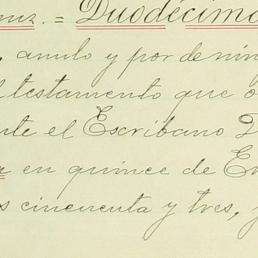 nuz. = Duodécima
, anulo y por de nin
l testamento que o
nte el Escribano D
en quince de En
s cincuenta y tres, y